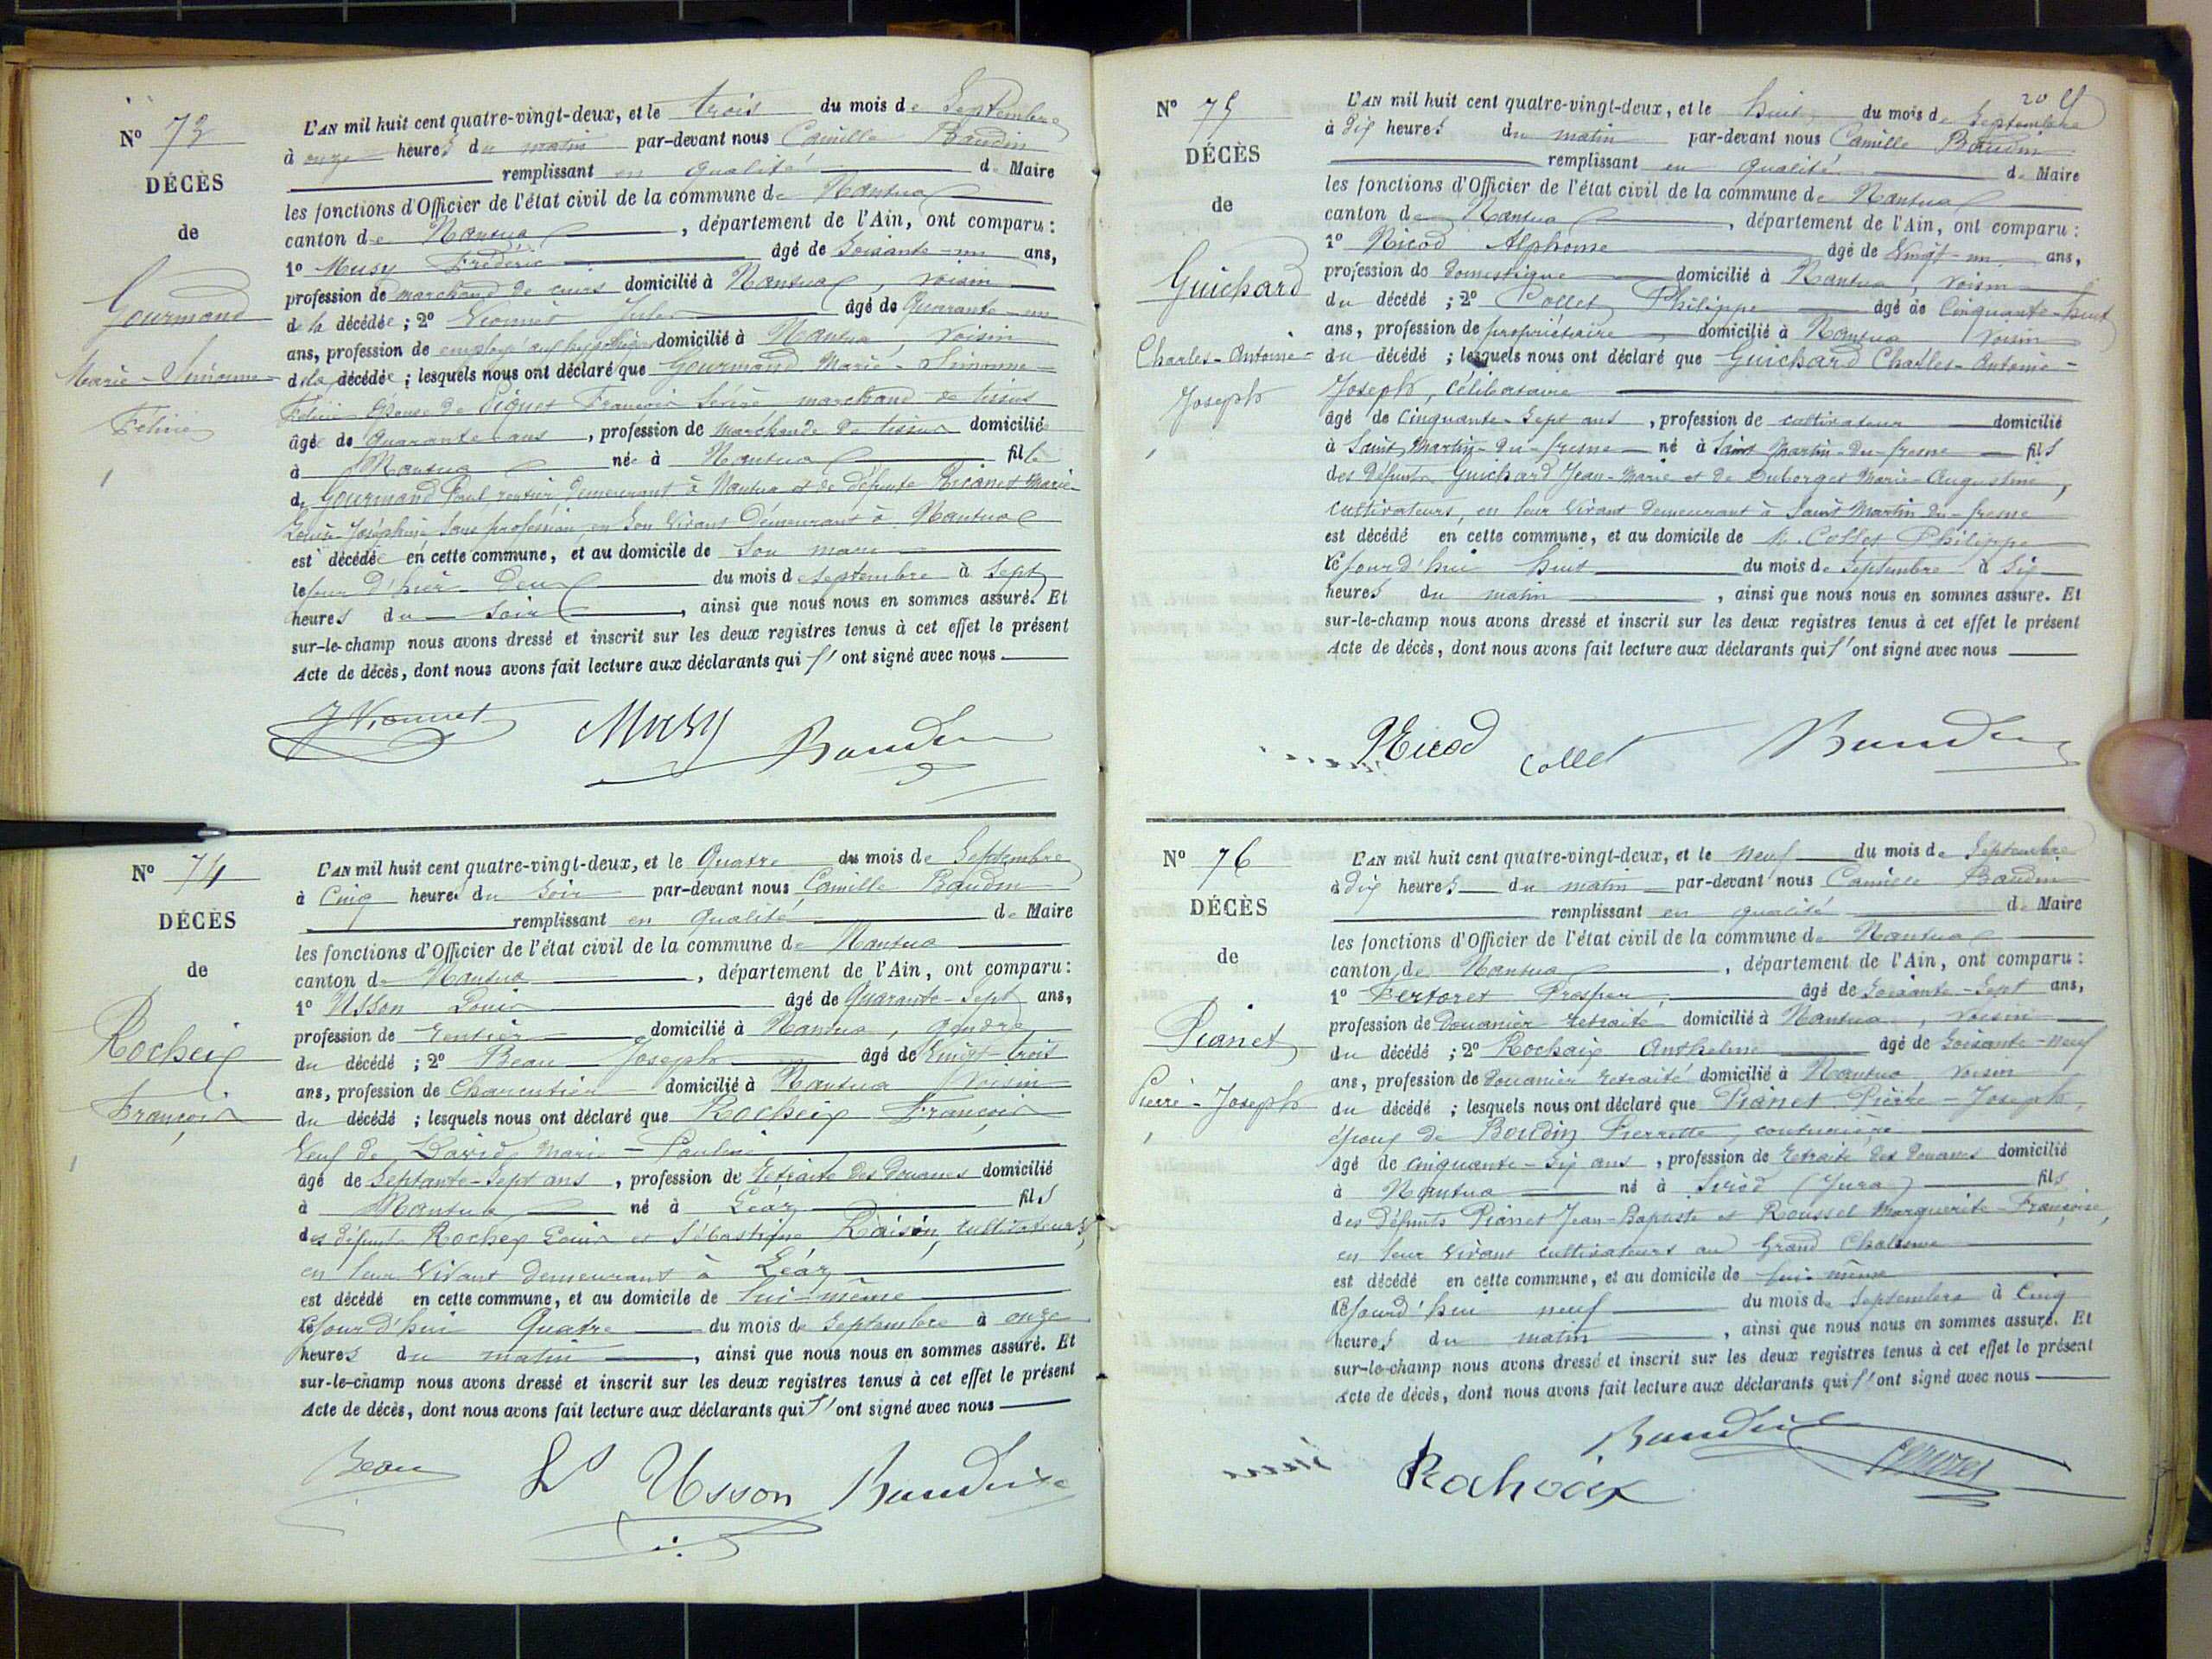 N° 73
DÉCÈS
de
Gourmand
Marie-Simonne-
Féline
L'AN mil huit cent quatre-vingt-deux, et le trois du mois de Septembre
à onze heures du matin par-devant nous Camille Baudin
remplissant en qualité de Maire
les fonctions d'Officier de l'état civil de la commune de Nantua
canton de Nantua, département de l'Ain, ont comparu:
1° Musy Frédéric âgé de Soixante-un ans,
profession de marchand de cuirs domicilié à Nantua, voisin
de la décédée; 2° Vionnet Jules âgé de Quarante-un
ans, profession de employé aux hypothèques domicilié à Nantua, voisin
de la décédée; lesquels nous ont déclaré que Gourmand Marie-Simonne-
Féline épouse de Piquet François marchand de tissus
âgée de quarante ans, profession de marchande de tissus domiciliée
à Nantua née à Nantua fille
de Gourmand Paul, rentier demeurant à Nantua et de défunte Marie-
Louise-Joséphine, sans profession, en son vivant demeurant à Nantua
est décédée en cette commune, et au domicile de son mari
le jour d'hier deux du mois de septembre à sept
heures du soir, ainsi que nous nous en sommes assuré. Et
sur-le-champ nous avons dressé et inscrit sur les deux registres tenus à cet effet le présent
Acte de décès, dont nous avons fait lecture aux déclarants qui l'ont signé avec nous
J Vionnet Musy Baudin
N° 74
DÉCÈS
de
Rocheix
François
L'AN mil huit cent quatre-vingt-deux, et le Quatre du mois de Septembre
à Cinq heures du soir par-devant nous Camille Baudin
remplissant en qualité de Maire
les fonctions d'Officier de l'état civil de la commune de Nantua
canton de Nantua, département de l'Ain, ont comparu:
1° Usson Louis âgé de Quarante-Sept ans,
profession de Rentier domicilié à Nantua, gendre
du décédé; 2° Beau Joseph âgé de Vingt-trois
ans, profession de Charcutier domicilié à Nantua voisin
du décédé; lesquels nous ont déclaré que Rocheix François
Veuf de David Marie-Pauline
âgé de Septante-Sept ans, profession de Retraité des Douanes domicilié
à Nantua né à Léaz fils
des défunts Rochex Louis et Sébastique Raisin, cultivateurs,
en leur vivant demeurant à Léaz
est décédé en cette commune, et au domicile de lui-même
ce jourd'hui Quatre du mois de Septembre à onze
heures du matin, ainsi que nous nous en sommes assuré. Et
sur-le-champ nous avons dressé et inscrit sur les deux registres tenus à cet effet le présent
Acte de décès, dont nous avons fait lecture aux déclarants qui l'ont signé avec nous
Beau Ls Usson Baudin
20
N° 75
DÉCÈS
de
Guichard
Charles-Antoine-
Joseph
L'AN mil huit cent quatre-vingt-deux, et le huit du mois de Septembre
à dix heures du matin par-devant nous Camille Baudin
remplissant en qualité de Maire
les fonctions d'Officier de l'état civil de la commune de Nantua
canton de Nantua, département de l'Ain, ont comparu:
1° Nicod Alphonse âgé de Vingt-un ans,
profession de domestique domicilié à Nantua, voisin
du décédé; 2° Collet Philippe âgé de Cinquante-huit
ans, profession de propriétaire domicilié à Nantua voisin
du décédé; lesquels nous ont déclaré que Guichard Charles-Antoine-
Joseph, célibataire
âgé de Cinquante-Sept ans, profession de cultivateur domicilié
à Saint Martin-du-fresne né à Saint Martin-du-fresne fils
des défunts Guichard Jean-Marie et de Duberget Marie-Augustine,
cultivateurs, en leur vivant demeurant à Saint Martin du-fresne
est décédé en cette commune, et au domicile de Mr. Collet Philippe
ce jourd'hui huit du mois de Septembre à six
heures du matin, ainsi que nous nous en sommes assuré. Et
sur-le-champ nous avons dressé et inscrit sur les deux registres tenus à cet effet le présent
Acte de décès, dont nous avons fait lecture aux déclarants qui l'ont signé avec nous
Nicod Collet Baudin
N° 76
DÉCÈS
de
Pianet
Pierre-Joseph
L'AN mil huit cent quatre-vingt-deux, et le neuf du mois de Septembre
à dix heures du matin par-devant nous Camille Baudin
remplissant en qualité de Maire
les fonctions d'Officier de l'état civil de la commune de Nantua
canton de Nantua, département de l'Ain, ont comparu:
1° Fertoret Prosper, âgé de Soixante-Sept ans,
profession de Douanier retraité domicilié à Nantua, voisin
du décédé; 2° Rochaix Anthelme âgé de Soixante-neuf
ans, profession de douanier retraité domicilié à Nantua, voisin
du décédé; lesquels nous ont déclaré que Pianet Pierre-Joseph,
époux de Boudin Pierrette, couturière
âgé de cinquante-six ans, profession de Retraité des Douanes domicilié
à Nantua né à Sirod (Jura) fils
des défunts Pianet Jean-Baptiste et Roussel Marguerite-Françoise,
en leur vivant cultivateurs au Grand Chalesme
est décédé en cette commune, et au domicile de lui-même
ce jourd'hui neuf du mois de Septembre à Cinq
heures du matin, ainsi que nous nous en sommes assuré. Et
sur-le-champ nous avons dressé et inscrit sur les deux registres tenus à cet effet le présent
Acte de décès, dont nous avons fait lecture aux déclarants qui l'ont signé avec nous
Rahoaix Baudin